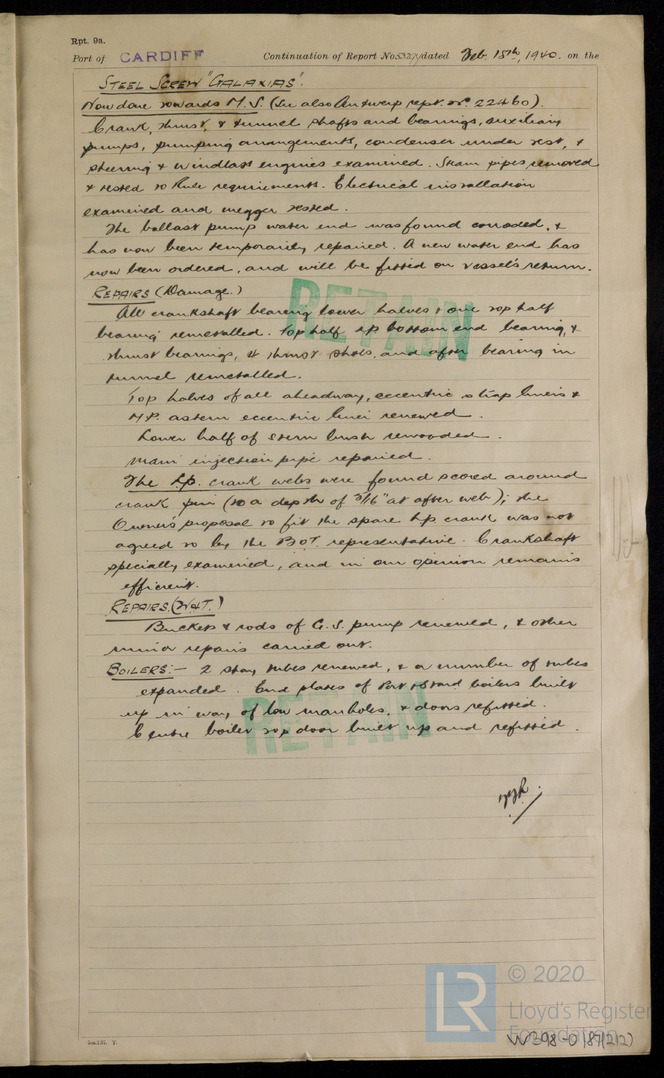 Rpt. 9a.
Port of CARDIFF Continuation of Report No. dated Feb. 15th, 1940. on the
STEEL SCREW "GALAXIAS".
Now done towards M.S. (See also Antwerp rept. No. 22460).
Crank, thrust, & tunnel shafts and bearings, auxiliary
pumps, pumping arrangements, condenser under test, &
steering & windlass engines examined. Steam pipes removed
& tested to Rule requirements. Electrical installation
examined and megger tested.
The ballast pump water end was found corroded, &
has now been temporarily repaired. A new water end has
now been ordered, and will be fitted on vessel's return.
REPAIRS (Damage.)
All crankshaft bearing lower halves & one top half
bearing remetalled. Top half LP bottom end bearing, &
thrust bearings, & thrust shoes, and after bearing in
tunnel remetalled.
Top halves of all aheadway, eccentric strap liners &
M.P. astern eccentric liner renewed.
Lower half of stern bush rewooded.
Main injection pipe repaired.
The L.p. crank webs were found scored around
crank pin (to a depth of 3/16" at after web); the
Owners' proposal to fit the spare L.p crank was not
agreed to by the BOT representative. Crankshaft
specially examined, and in our opinion remains
efficient.
REPAIRS. (W&T.)
Bucket & rods of G.S. pump renewed, & other
minor repairs carried out.
BOILERS:— 2 stay tubes renewed, & a number of tubes
expanded. End plates of Port & Starbd boilers built
up in way of low manholes, & doors refitted.
Centre boiler top door built up and refitted.
RETAIN
RETAIN
© 2020
LR
Lloyd's Register
Foundation
W398-0189(2/2)